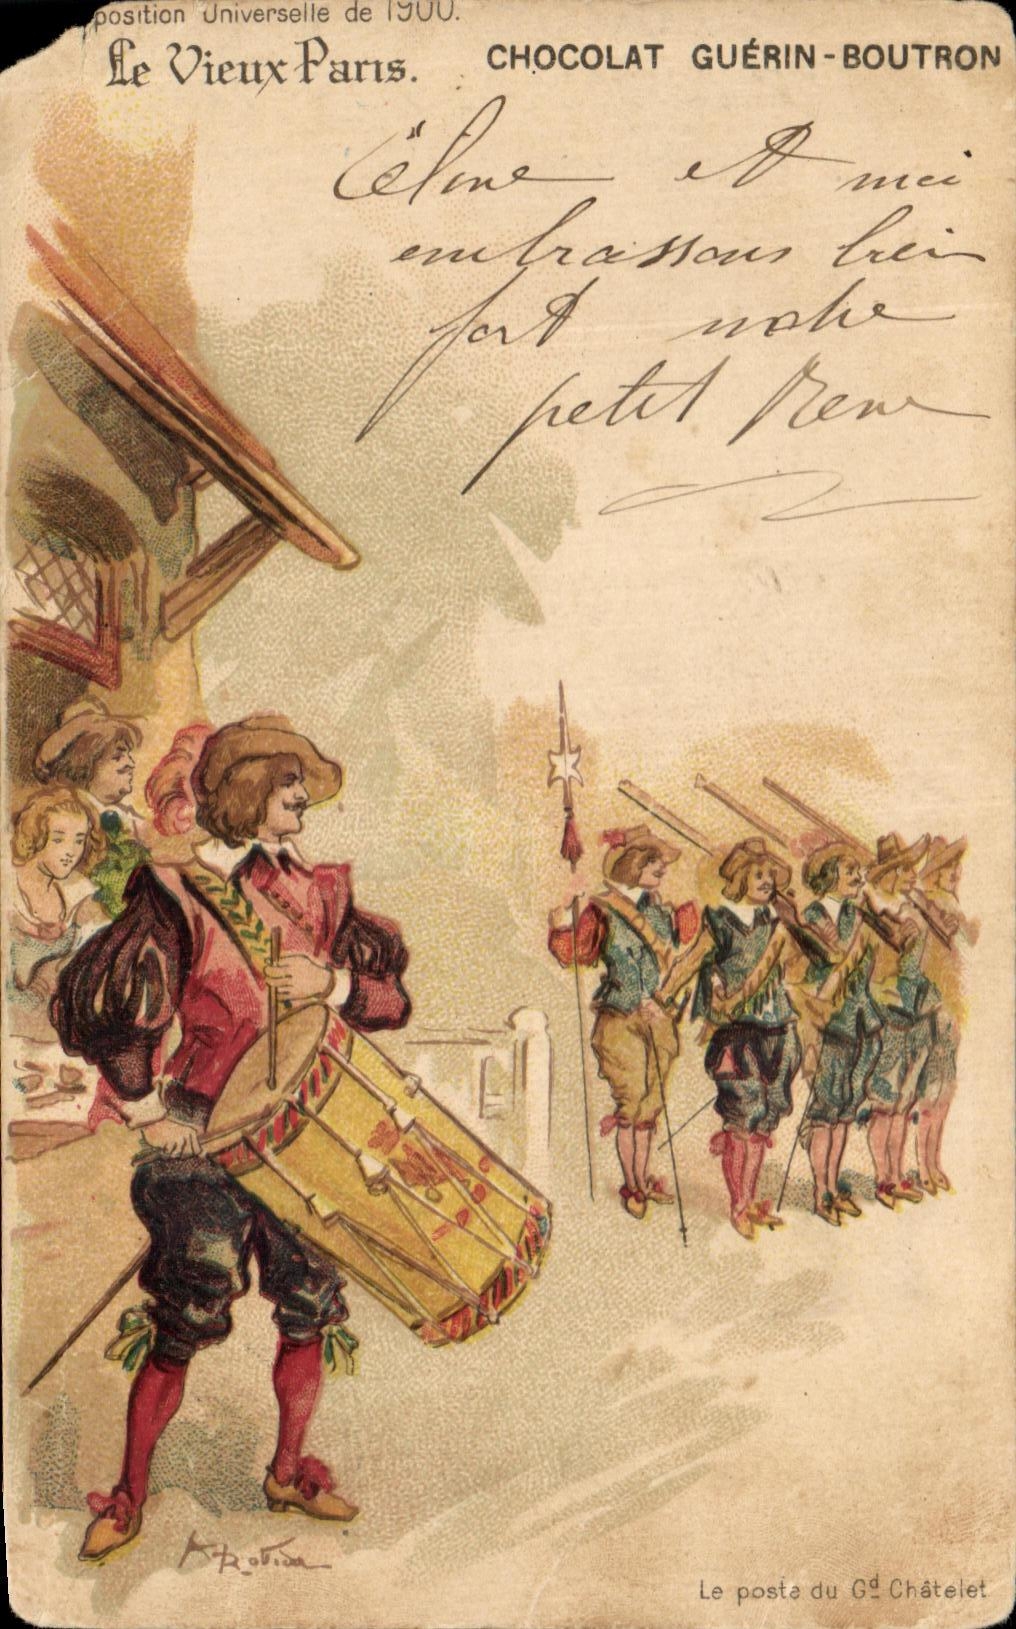 position Universelle de 1900.
Le Vieux Paris.
CHOCOLAT GUÉRIN-BOUTRON
Céline et moi
embrassons bien
fort notre
petit René
A. Robida
Le poste du Gd Châtelet